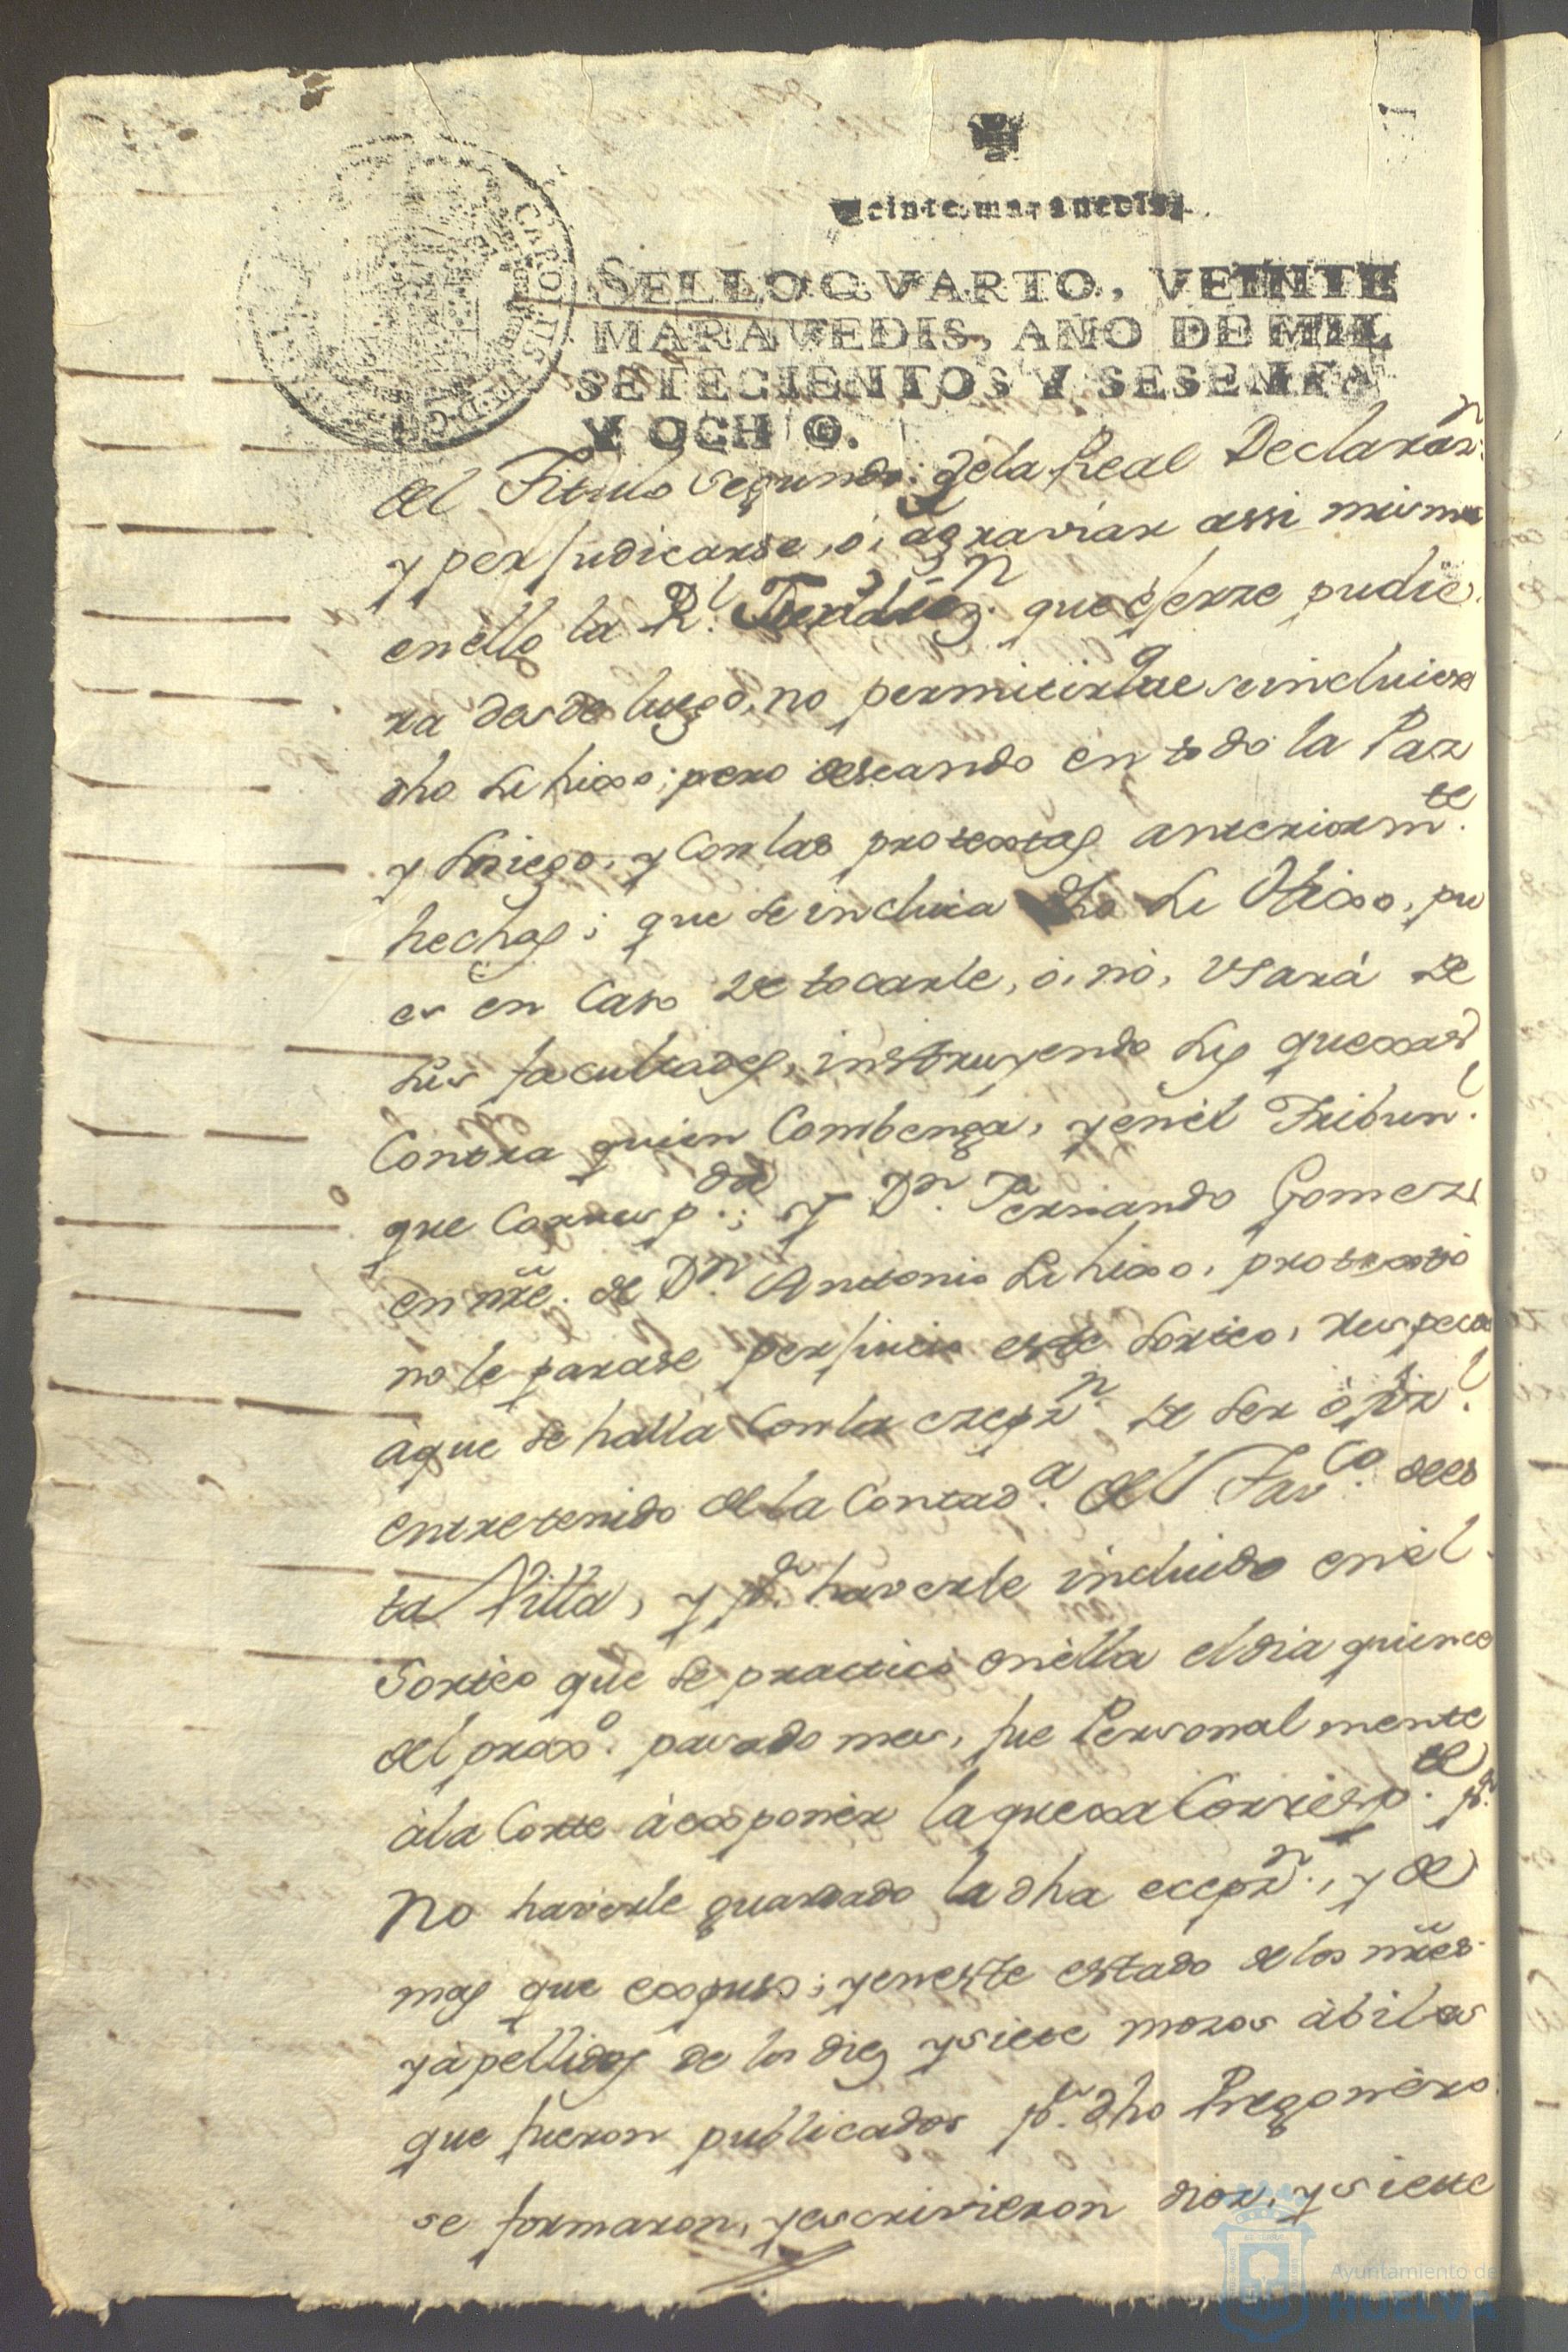 Veinte maravedis.
SELLO QVARTO, VEINTE
MARAVEDIS, AÑO DE MIL
SETECIENTOS Y SESENTA
Y OCHO.
CAROLUS III D G
del Titulo Segundo de la Real Declaraz.n
y perjudicarse, ó, agraviar assi mismo
en ello la R.l Jurisdiz.n que ejerze pudie
ra desde luego, no permitir que se incluiese
dho Lihixo; pero deseando en todo la Paz
y Sosiego, y Con las protextas anteriorm.te
hechas; que se incluia dho Li Hixo, pu
es en Caso de tocarle, ó, nó, Usará de
sus facultades, instruyendo sus quexas
Contra quien Combenga, y en el Tribun.l
que Corresp.de; y D.n Fernando Gomez
en nre. de D.n Antonio Lihixo, protextó
no le parase perjuicio este Sorteo, respecto
á que se halla Con la exepz.n de ser ofiz.l
entretenido de la Contad.a del Tav.co de es
ta Villa, y p.r haverle incluido en el
Sorteo que se practicó en ella el dia quince
del prox.o pasado mes, fue Personal mente
á la Corte á exponer la quexa Corresp.te p.r
No haverle guardado la dha ecepz.n, y de
mas que expuso; y en este estado de los nres.
y apellidos de los diez y siete mozos abiles
que fueron publicados p.r dho Pregonero
se formaron, y escrivieron diez, y siette
Ayuntamiento de
HUELVA